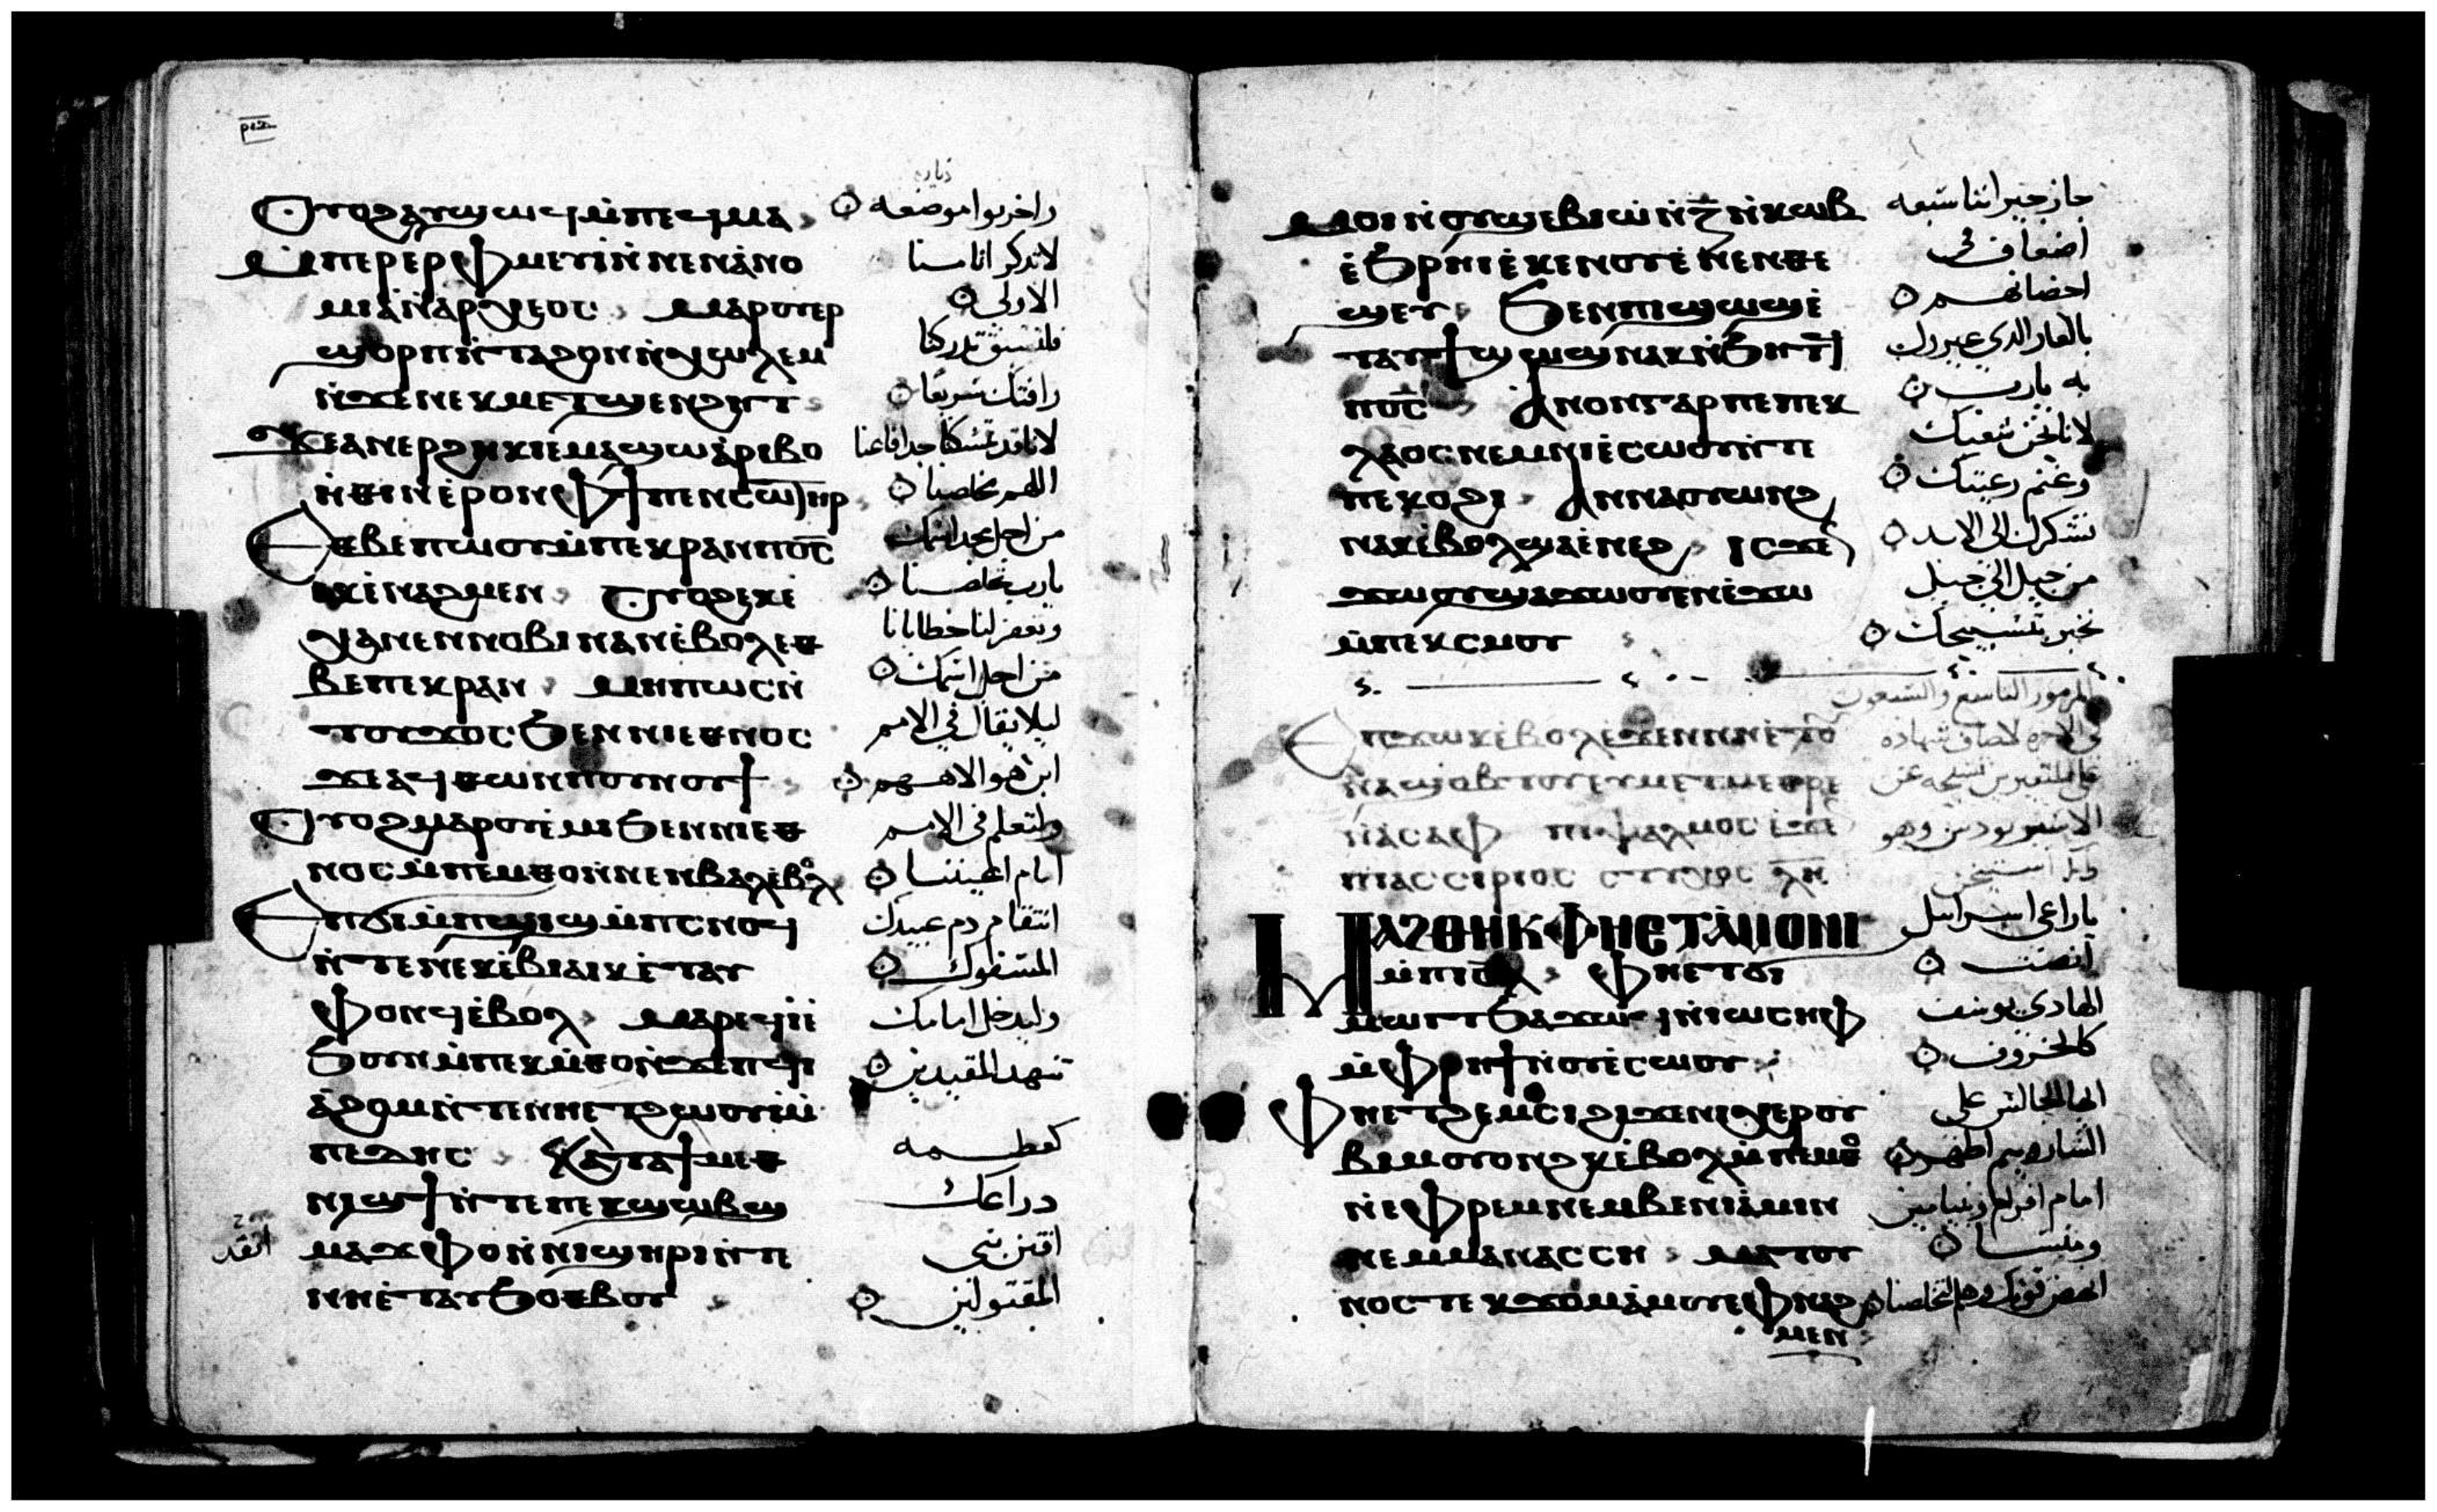 ⲣⲓⲍ
ⲟⲩⲟϩ ⲁⲩϣⲱϥ ⲙ̀ⲡⲉϥⲙⲁ واخربوا موضعه
ⲙ̀ⲡⲉⲣⲉⲣⲫⲙⲉⲩⲓ ⲛ̀ⲛⲉⲛⲁ̀ⲛⲟ لا تذكر اثامنا
ⲙⲓⲁ ⲛ̀ⲁⲣⲭⲉⲟⲥ ⲙⲁⲣⲟⲩⲉⲣ الاولى
ϣⲟⲣⲡ ⲛ̀ⲧⲁϩⲟⲛ ⲛ̀ⲭⲱⲗⲉⲙ فلتسبق تدركنا
ⲛ̀ϫⲉ ⲛⲉⲕⲙⲉⲧϣⲉⲛϩⲏⲧ رافتك سريعا
ϫⲉ ⲁⲛⲉⲣϩⲏⲕⲓ ⲉⲙⲁϣⲱ ⲁ̀ⲣⲓⲃⲟ لاننا قد تمسكنا جدا فاعنا
ⲛ̀ⲑⲓⲛ ⲉ̀ⲣⲟⲛ ⲫϯ ⲡⲉⲛⲥⲱⲏⲣ اللهم مخلصنا
ⲉⲑⲃⲉ ⲡⲱⲟⲩ ⲙ̀ⲡⲉⲕⲣⲁⲛ ⲡⲟⲥ من اجل مجد اسمك
ⲉⲕⲉ̀ⲛⲁϩⲙⲉⲛ ⲟⲩⲟϩ ⲉⲕⲉ̀ يارب تخلصنا
ⲭⲁ ⲛⲉⲛⲛⲟⲃⲓ ⲛⲁⲛ ⲉ̀ⲃⲟⲗ ⲉⲑ وتغفر لنا خطايانا
ⲃⲉ ⲡⲉⲕⲣⲁⲛ ⲙⲏⲡⲱⲥ ⲛ̀ من اجل اسمك
ⲧⲟⲩϫⲟⲥ ϧⲉⲛ ⲛⲓⲉⲑⲛⲟⲥ ليلا يقال في الامم
ϫⲉ ⲁϥⲑⲱⲛ ⲡⲟⲩⲛⲟⲩϯ اين هو الاههم
ⲟⲩⲟϩ ⲙⲁⲣⲟⲩⲉ̀ⲙⲓ ϧⲉⲛ ⲛⲓⲉⲑ ولتعلم في الامم
ⲛⲟⲥ ⲙ̀ⲡⲉⲙⲑⲟ ⲛ̀ⲛⲉⲛⲃⲁⲗ ⲉ̀ⲃⲟⲗ امام اعيننا
ⲉⲡϭⲓ ⲙ̀ⲡϣⲓϣ ⲙ̀ⲡⲥⲛⲟϥ انتقام دم عبيدك
ⲛ̀ⲧⲉ ⲛⲉⲕⲉ̀ⲃⲓⲁⲓⲕ ⲉ̀ⲧⲁⲩ المسفوك
ⲫⲟⲛϥ ⲉ̀ⲃⲟⲗ ⲙⲁⲣⲉϥⲓ̀ وليدخل امامك
ϧⲟⲩⲛ ⲙ̀ⲡⲉⲕⲙ̀ⲑⲟ ⲛ̀ϫⲉ ⲡϥⲓ تنهد المقيدين
ⲁ̀ϩⲟⲙ ⲛ̀ⲧⲉ ⲛⲏⲉⲧϩⲱⲟⲩⲓ ⲙ̀
ⲡⲉⲇⲏⲥ ⲕⲁⲧⲁ ϯⲙⲉⲑ كعظمه
ⲛⲓϣϯ ⲛ̀ⲧⲉ ⲡⲉⲕϣⲱⲃϣ دراعك
ⲙⲁⲑⲫⲟ ⲛ̀ⲛⲓϣⲏⲣⲓ ⲛ̀ⲧⲉ اقتن بني
ⲛⲏⲉ̀ⲧⲁⲩϧⲟⲑⲃⲟⲩ المقتولين
ⲙⲟⲓ ⲛ̀ⲟⲩϣⲉⲃⲓⲱ̀ ⲛ̀ⲍ̄ ⲛ̀ⲕⲱⲃ جاز جيراننا سبعه
ⲉ̀ϧⲣⲏⲓ ⲉ̀ⲕⲉⲛⲟⲩ ⲛ̀ⲛⲉⲛⲑⲉ اضعاف في
ϣⲉⲩ ϧⲉⲛ ⲡⲓϣⲱϣ ⲉ̀ احضانهم
ⲧⲁⲩϯϣⲱϣ ⲛⲁⲕ ⲛ̀ϧⲏⲧϥ بالعار الدي عيروك
ⲡⲟⲥ ⲁⲛⲟⲛ ⲅⲁⲣ ⲡⲉ ⲡⲉⲕ به يارب
ⲗⲁⲟⲥ ⲛⲉⲙ ⲛⲓⲉ̀ⲥⲱⲟⲩ ⲛ̀ⲧⲉ لاننا نحن شعبك
ⲡⲉⲕⲟϩⲓ ⲁⲛⲛⲁⲟⲩⲱⲛϩ وغنم رعيتك
ⲛⲁⲕ ⲉ̀ⲃⲟⲗ ϣⲁ ⲉ̀ⲛⲉϩ ⲓⲥϫⲉⲛ نشكرك الى الابد
ϫⲱⲟⲩ ϣⲁ ϫⲱⲟⲩ ⲉⲛⲉ̀ϫⲱ من جيل الى جيل
ⲙ̀ⲡⲉⲕⲥⲙⲟⲩ نخبر بتسبيحك
المزمور التاسع والسبعون
ⲉⲡϫⲱⲕ ⲉ̀ⲃⲟⲗ ⲉ̀ϫⲉⲛ ⲛⲏⲉ̀ⲧⲟⲩ
ⲛⲁϣⲟⲃⲧⲟⲩ ⲉⲩⲙⲉⲧⲙⲉⲑⲣⲉ
ⲛ̀ⲁⲥⲁⲫ ⲡⲓⲯⲁⲗⲙⲟⲥ ⲉ̀ϫⲉⲛ
ⲛⲓⲁⲥⲥⲩⲣⲓⲟⲥ
ⲙⲁϩⲑⲏⲕ ⲫⲏⲉⲧⲁ̀ⲙⲟⲛⲓ ياراعي اسراييل
ⲙ̀ⲡⲓⲥ̅ⲗ ⲫⲏⲉⲧϭⲓ انصت
ⲙⲱⲓⲧ ϧⲁϫⲱϥ ⲛ̀ⲓⲱⲥⲏⲫ الهادي يوسف
ⲙ̀ⲫⲣⲏϯ ⲛ̀ⲟⲩⲉ̀ⲥⲱⲟⲩ كالخروف
ⲫⲏⲉⲧϩⲉⲙⲥⲓ ϩⲓϫⲉⲛ ⲛⲓⲭⲉⲣⲟⲩ ايها الجالس على
ⲃⲓⲙ ⲟⲩⲟⲛϩⲕ ⲉ̀ⲃⲟⲗ ⲙ̀ⲡⲉⲙⲑⲟ الشاروبيم اظهر
ⲛ̀ⲉⲫⲣⲉⲙ ⲛⲉⲙ ⲃⲉⲛⲓⲁ̀ⲙⲓⲛ امام افرام وبنيامين
ⲛⲉⲙ ⲙⲁⲛⲁⲥⲥⲏ ⲙⲁⲧⲟⲩ ومنسا
ⲛⲟⲥ ⲧⲉⲕϫⲟⲙ ⲁ̀ⲙⲟⲩ ⲉ̀ⲫⲛⲁϩ انهض قوتك وهلم لتخلصنا
ⲙⲉⲛ